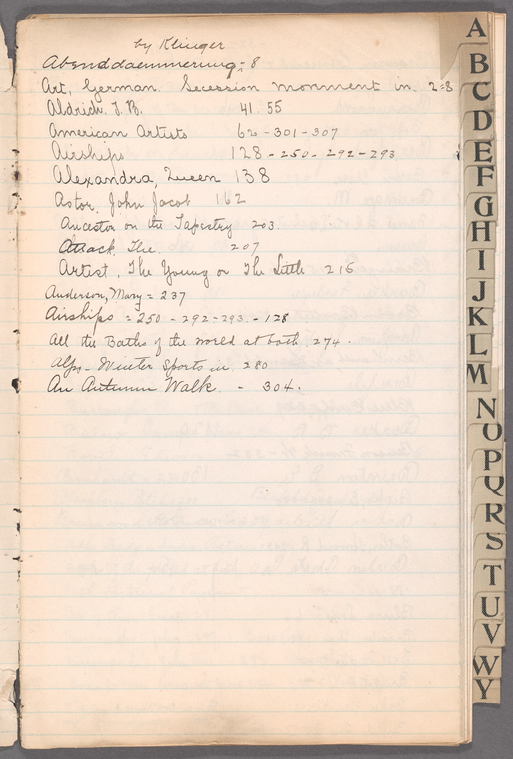 by Klinger
Abenddaemmerung - 8
Art, German Secession monment in 2=8
Aldrich. T. B. 41. 55
American Artists 62-301-307
Airships 128-250-292-293
Alexandra, Queen 138
Astor, John Jacob 162
Ancestor on the Tapestry 203.
Attack The 207
Artist, The Young or The Little 216
Anderson, Mary = 237
Airships = 250-292-293.-128
All the Baths of the world at both. 274.
Alps - Winter Sports in 280
An Autumn Walk - 304.
A
B
C
D
E
F
G
H
I
J
K
L
M
N
O
P
Q
R
S
T
U
V
W
Y